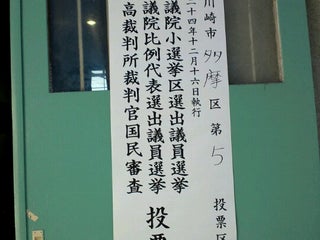 川崎市多摩区第5投票区
二十四年十二月十六日執行
議院小選挙区選出議員選挙
議院比例代表選出議員選挙
高裁判所裁判官国民審査
投票